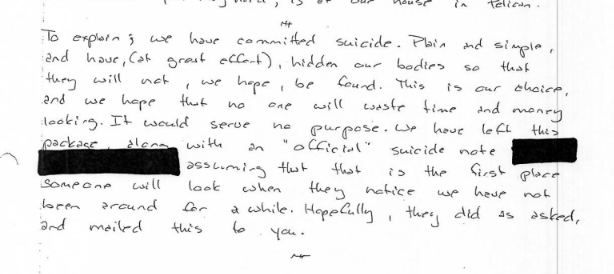 is at our house in Pelican.
To explain; we have committed suicide. Plain and simple,
and have, (at great effort), hidden our bodies so that
they will not, we hope, be found. This is our choice,
and we hope that no one will waste time and money
looking. It would serve no purpose. We have left this
package, along with an "official" suicide note
assuming that that is the first place
someone will look when they notice we have not
been around for a while. Hopefully, they did as asked,
and mailed this to you.